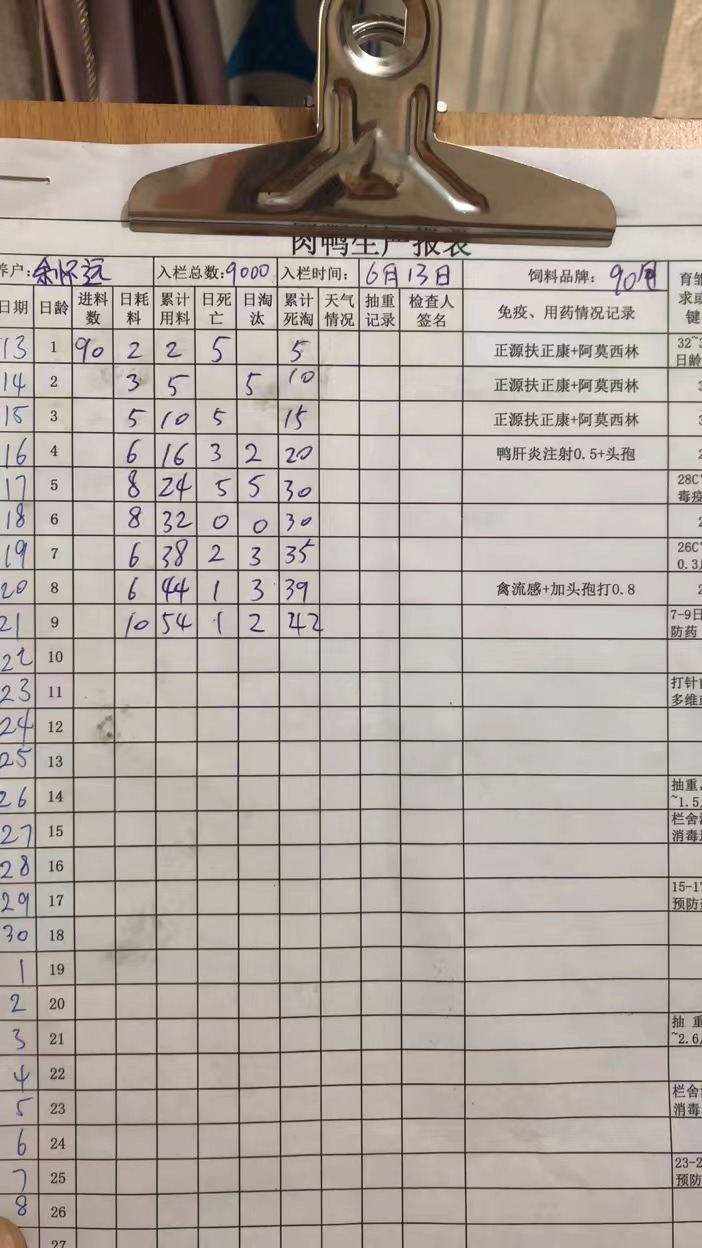 肉鸭生产报表
养户:余怀远 入栏总数:9000 入栏时间: 6月13日 饲料品牌: 育雏
日期 日龄 进料数 日耗料 累计用料 日死亡 日淘汰 累计死淘 天气情况 抽重记录 检查人签名 免疫、用药情况记录 求或 键
13 1 90 2 2 5 5 正源扶正康+阿莫西林 32~ 日龄
14 2 3 5 5 10 正源扶正康+阿莫西林
15 3 5 10 5 15 正源扶正康+阿莫西林
16 4 6 16 3 2 20 鸭肝炎注射0.5+头孢 2
17 5 8 24 5 5 30 28C° 毒疫
18 6 8 32 0 0 30 2
19 7 6 38 2 3 35 26C° 0.3
20 8 6 44 1 3 39 禽流感+加头孢打0.8 2
21 9 10 54 1 2 42 7-9日 防药
22 10
23 11 打针 多维
24 12
25 13
26 14 抽重, ~1.5
27 15 栏舍 消毒
28 16
29 17 15-17 预防
30 18
1 19
2 20
3 21 抽 重 ~2.6
4 22
5 23 栏舍 消毒
6 24
7 25 23-2 预防
8 26
27